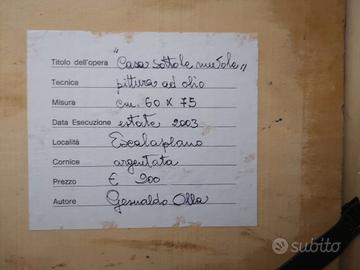 Titolo dell'opera "Casa sotto le nuvole"
Tecnica pittura ad olio
Misura cm. 60 x 75
Data Esecuzione estate 2003
Località Escalaplano
Cornice argentata
Prezzo € 900
Autore Olla
subito